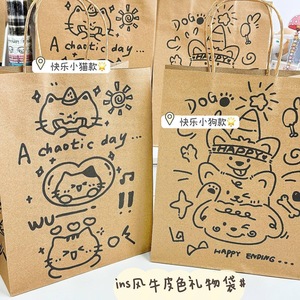 A chaotic day...
快乐小猫款
A chaotic day...
WU
!!
DOG
快乐小狗款
HAPPY
HAPPY ENDING...
ins风牛皮色礼物袋#